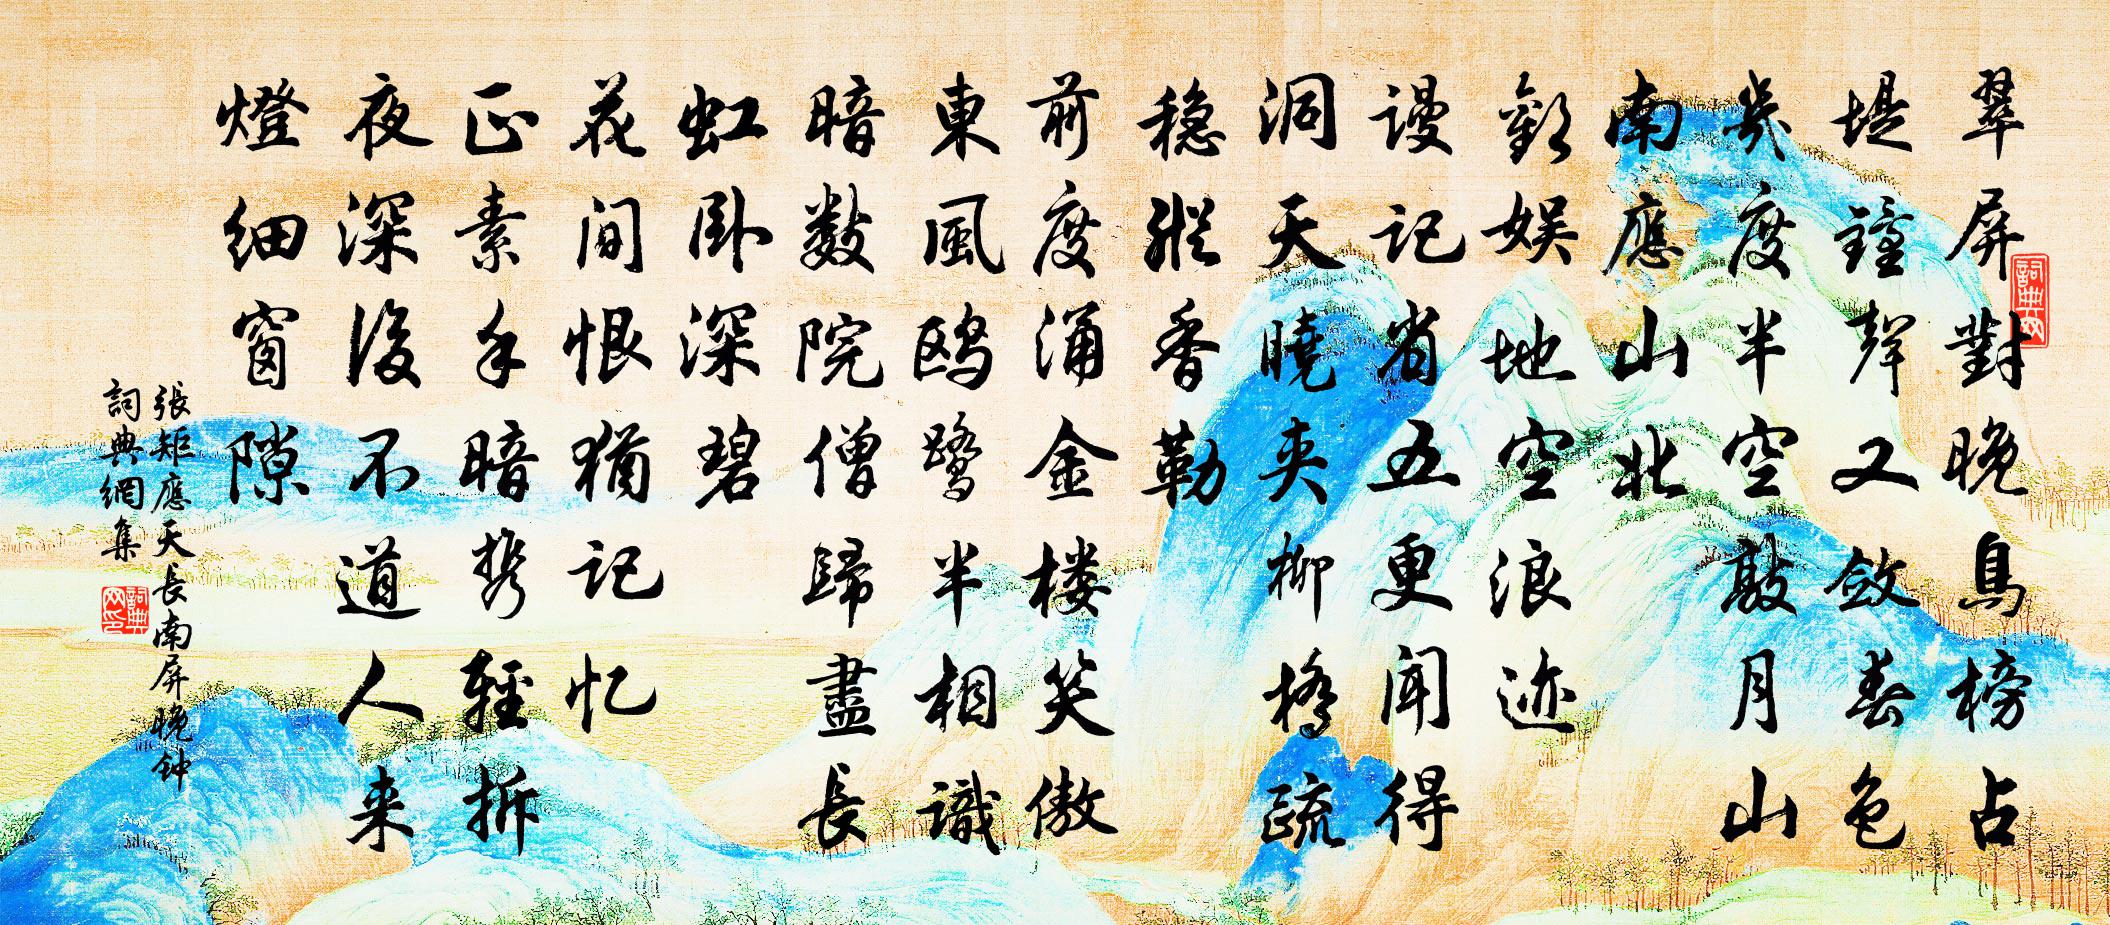 翠屏對晚鳥榜占
堤鐘聲又斂春色
幾度半空敲月山
南應山北
歡娱地空浪迹
謾记省五更闻得
洞天曉夹柳橋疏
穏縱香勒
前度涌金楼笑傲
東風鸥鹭半相識
暗數院僧歸盡長
虹卧深碧
花间恨猶记忆
正素手暗携輕拆
夜深後不道人来
燈细窗隙
張矩應天長南屏晚钟
詞典網集
詞典网
詞典网印